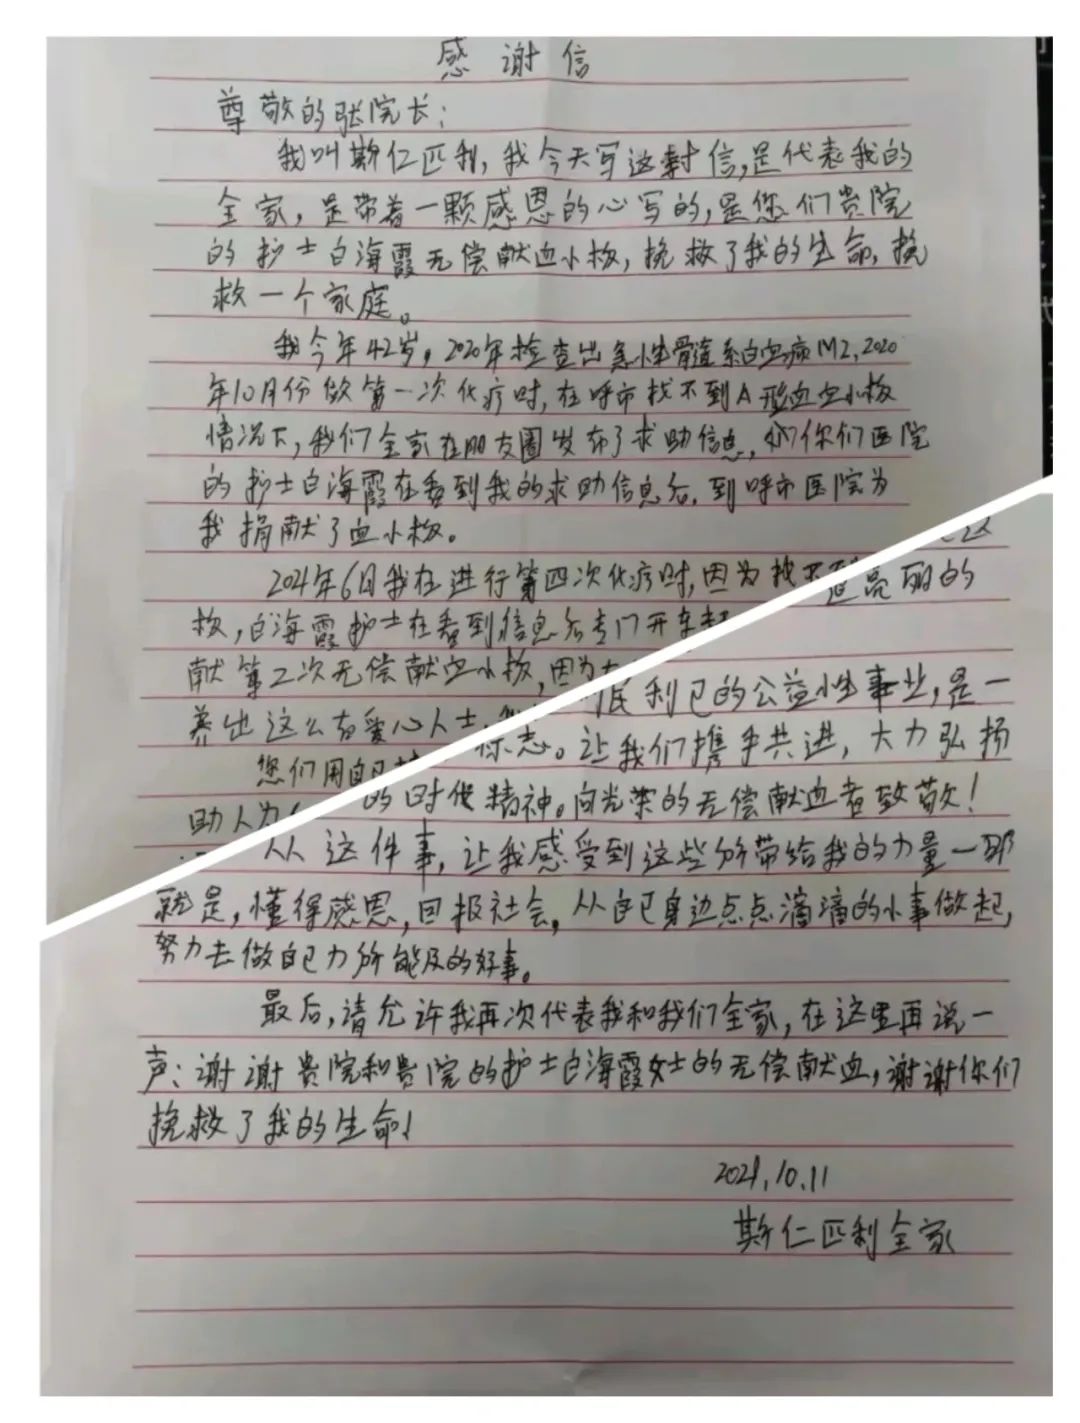 感谢信
尊敬的张院长：
我叫斯仁匹利，我今天写这封信，是代表我的
全家，是带着一颗感恩的心写的，是您们贵院
的护士白海霞无偿献血小板，挽救了我的生命，挽
救一个家庭。
我今年42岁，2020年检查出急性骨髓系白血病M2，2020
年10月份做第一次化疗时，在呼市找不到A形血血小板
情况下，我们全家在朋友圈发布了求助信息，你们医院
的护士白海霞在看到我的求助信息后，到呼市医院为
我捐献了血小板。
2021年6月我在进行第四次化疗时，因为找不到
道亮丽的
板，白海霞护士在看到信息后专门开车
献第二次无偿献血小板，因为
利民利己的公益性事业，是一
养出这么有爱心人士
标志。让我们携手共进，大力弘扬
您们用自己
助人为
的时代精神。向光荣的无偿献血者致敬！
从这件事，让我感受到这些所带给我的力量一那
就是，懂得感恩，回报社会，从自己身边点点滴滴的小事做起，
努力去做自己力所能及的好事。
最后，请允许我再次代表我和我们全家，在这里再说一
声：谢谢贵院和贵院的护士白海霞女士的无偿献血，谢谢你们
挽救了我的生命！
2021.10.11
斯仁匹利全家